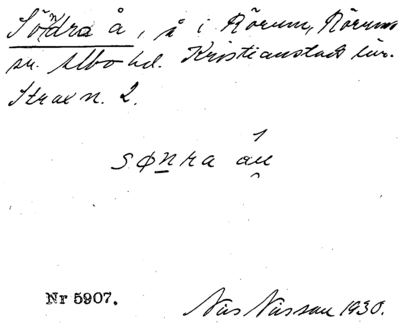 Södra å, å i Rörum, Rörums
sn. Albo hd. Kristianstads län.
n. 2.
sønra ån
Nr 5907.
Nils Nilsson 1930.